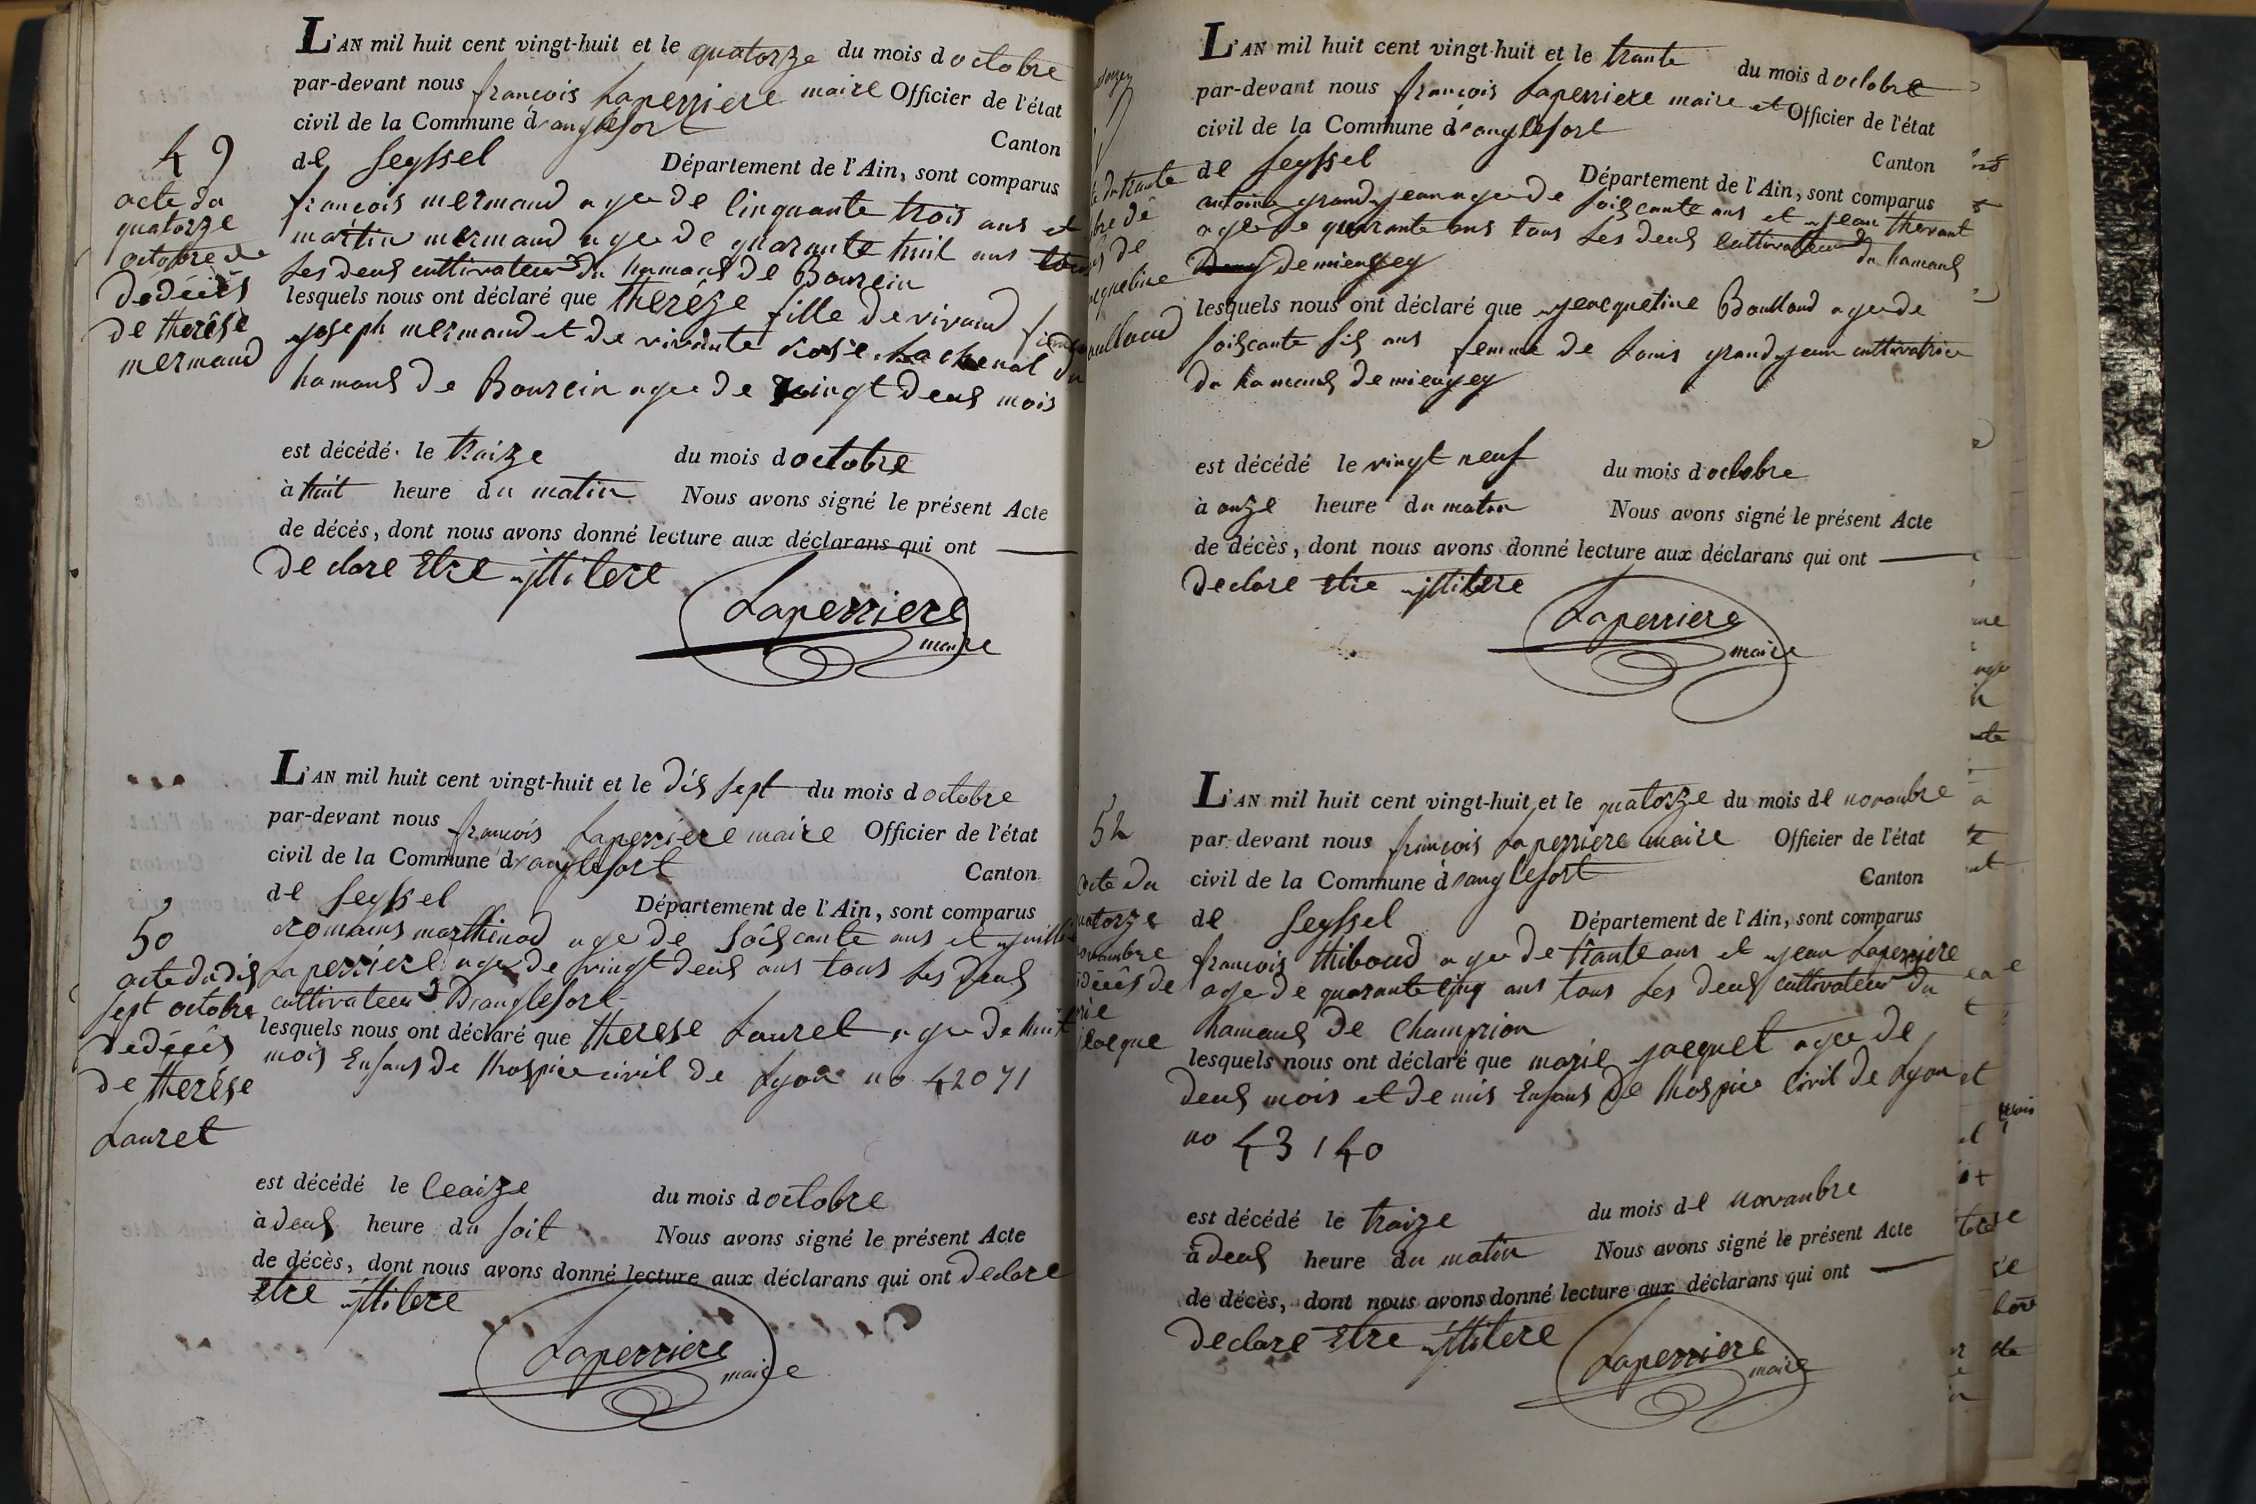 L'AN mil huit cent vingt-huit et le quatorze du mois d octobre
par-devant nous françois Laperriere maire Officier de l'état
civil de la Commune d'anglefort
Canton
de Seyssel Département de l'Ain, sont comparus
françois mermand agee de cinquante trois ans et
martin mermand agee de quarante huit ans tous
les deus cultivateur du hamaus de Bourcin
lesquels nous ont déclaré que therése fille de vivand
joseph mermand et de vivante rose Lachenal du
hamaus de Bourcin agee de vingt deus mois
est décédé le traize du mois d octobre
à huit heure du matin Nous avons signé le présent Acte
de décés, dont nous avons donné lecture aux déclarans qui ont
declare Etre illitere
Laperriere
maire
49
acte du
quatorze
octobre de
dedécés
de therèse
mermand
L'AN mil huit cent vingt-huit et le dis sept du mois d octobre
par-devant nous françois Laperriere maire Officier de l'état
civil de la Commune d'anglefort
Canton
de Seyssel Département de l'Ain, sont comparus
romains marthinod age de soiscante ans et
Laperriere age de vingt deus ans tous les deus
cultivateur Danglefort
lesquels nous ont déclaré que therese Lauret agee de huit
mois Enfans de lhospice civil de Lyon no 42071
est décédé le du mois d octobre
à deus heure du soit Nous avons signé le présent Acte
de décès, dont nous avons donné lecture aux déclarans qui ont declare
Etre illitere
Laperriere
maire
50
acte du dis
sept octobre
dedécés
de therése
Lauret
L'AN mil huit cent vingt-huit et le trante du mois d octobre
par-devant nous françois Laperriere maire et Officier de l'état
civil de la Commune d'anglefort
Canton
de Seyssel Département de l'Ain, sont comparus
antoine grandjean agee de soiscante ans et jean thevant
agee de quarante ans tous les deus cultivateur du hamaus
de mieugey
lesquels nous ont déclaré que jeacqueline Boulloud agee de
soiscante sis ans femme de Louis grandjean cultivatrice
du hamaus de mieugey
est décédé le vingt neuf du mois d octobre
à onze heure du maton Nous avons signé le présent Acte
de décès, dont nous avons donné lecture aux déclarans qui ont
declare Etre illitere
Laperriere
maire
du trante
L'AN mil huit cent vingt-huit et le quatorze du mois de novanbre
par-devant nous françois Laperriere maire Officier de l'état
civil de la Commune d'anglefort
Canton
de Seyssel Département de l'Ain, sont comparus
françois thiboud agee de trante ans et jean Laperriere
age de quarante cinq ans tous les deus cultivateur du
hamaus de Champion
lesquels nous ont déclaré que marie jacquet agee de
deus mois et demis Enfans de lhospice Civil de Lyon
no 43140
est décédé le traize du mois de novanbre
à deus heure du matin Nous avons signé le présent Acte
de décès, dont nous avons donné lecture aux déclarans qui ont
declare Etre illitere
Laperriere
maire
52
acte du